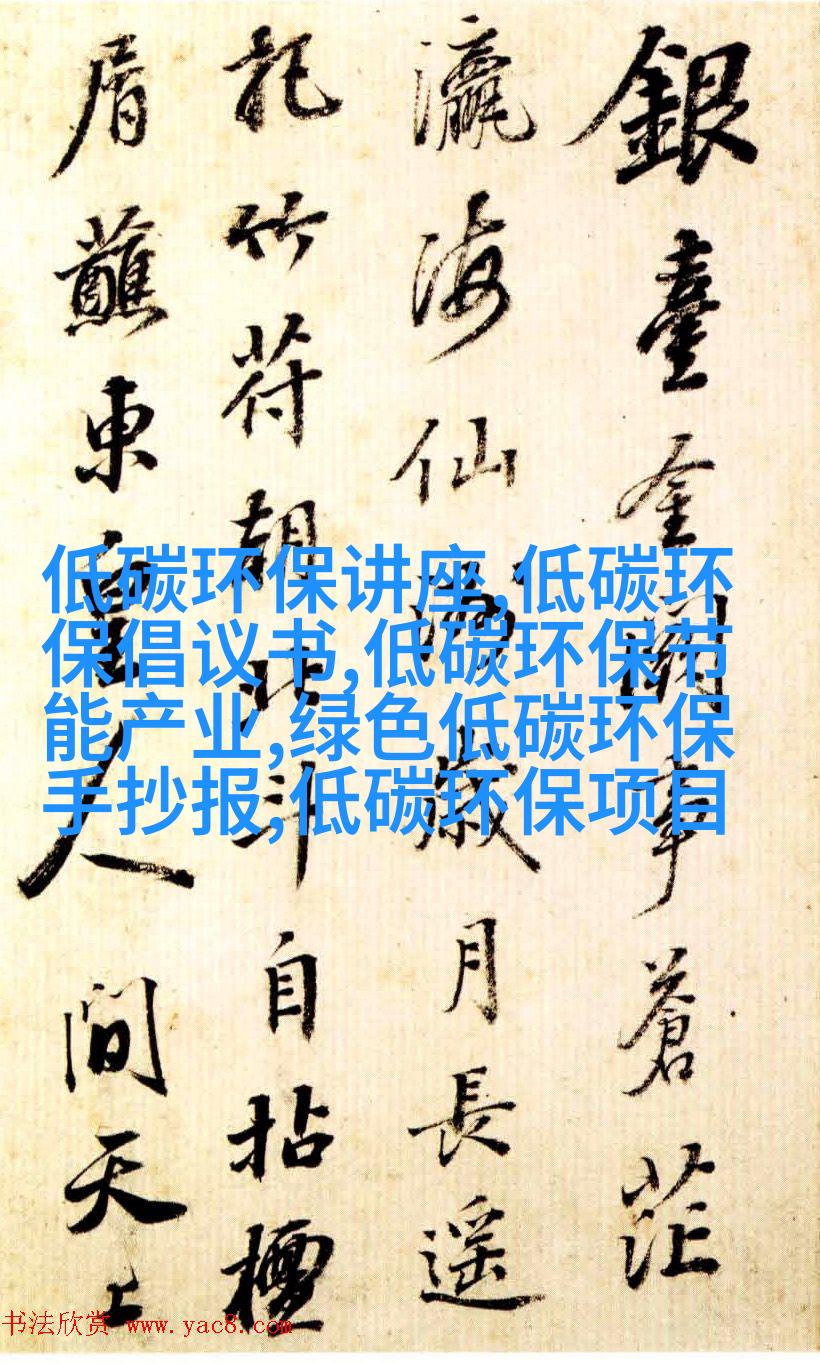 銀臺金闕事蒼茫
瀛海仙歲月長遥
竹符朝北斗自拈檀
屑蘸東皇人間天上
低碳环保讲座,低碳环
保倡议书,低碳环保节
能产业,绿色低碳环保
手抄报,低碳环保项目
书法欣赏 www.yac8.com